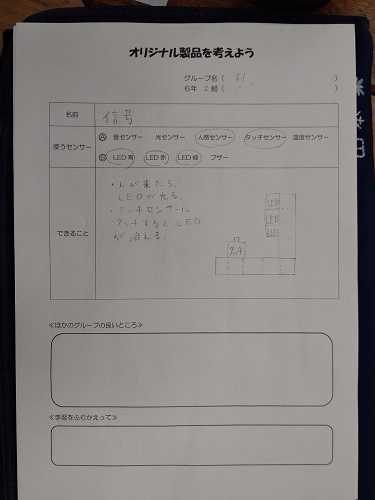 オリジナル製品を考えよう
グループ名( )
6年 2組( )
名前 信号
使うセンサー Ⓐ 音センサー 光センサー 人感センサー タッチセンサー 温度センサー
Ⓑ LED青 LED赤 LED緑 ブザー
できること
・人が来たら、
LEDが光る。
・タッチセンサーに
タッチすると、LED
が消える。
LED
LED
LED
タッチ
≪ほかのグループの良いところ≫
≪学習をふりかえって≫